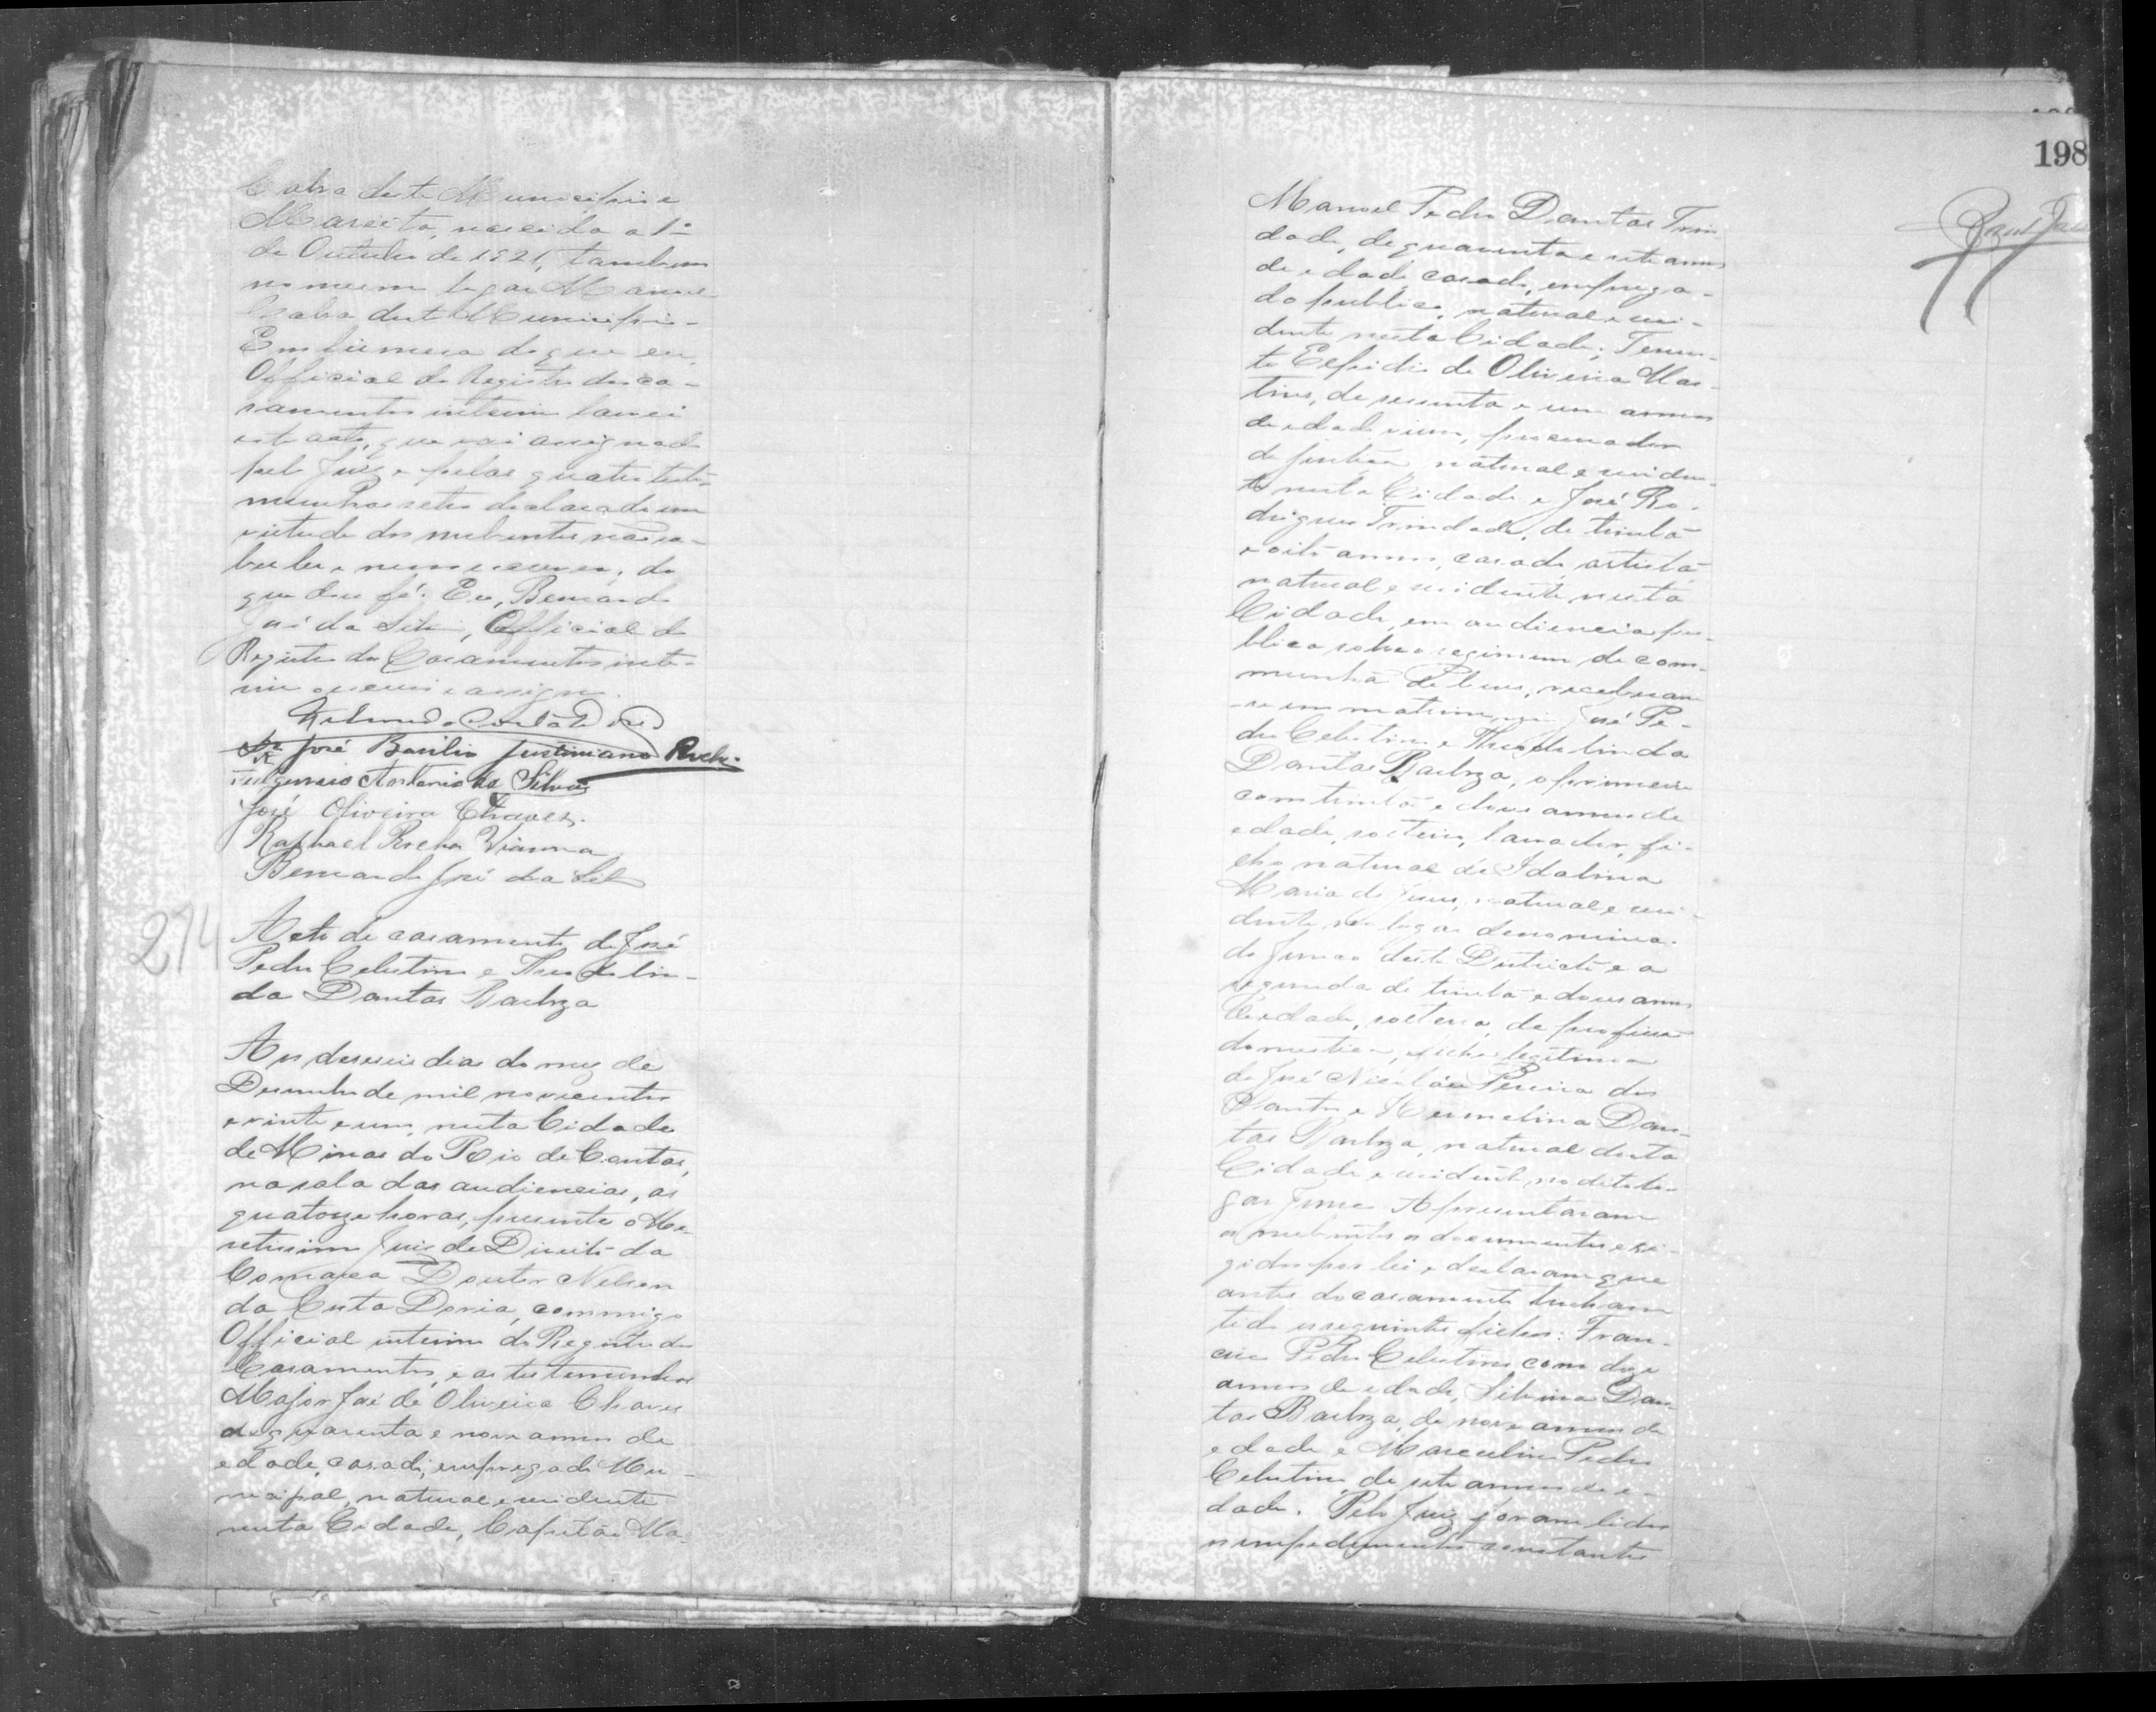 Cabra deste Municipio e
Mareita, nascida a 1º
de Outubro de 1921, tambem
no mesmo logar Manoel
Cabra deste Municipio.
Em firmeza do que eu,
Official do Registro dos ca-
samentos interino lavrei
este acto, que vai assignado
pelo Juiz e pelas quatro teste-
munhas retro declarado em
virtude dos nubentes não sa-
ber ler e nem escrever, do
que dou fé. Eu, Bernardo
José da Silva, Official do
Registro dos Casamentos inte-
rino o escrevi e assigno.
José Basilio Justiniano Rocha
Fulgencio Antonio da Silva
José Oliveira Chaves.
Raphael Rocha Vianna
Bernardo José da Silva
274
Acto de casamento de José
Pedro Celestino e Theodolin-
da Dantas Barboza
Aos deseseis dias do mez de
Desembro de mil novecentos
e vinte e um, nesta Cidade
de Minas do Rio de Contas,
na sala das audiencias, as
quatorze horas, presente o Me-
retissimo Juiz de Direito da
Comarca Doutor Nelson
da Costa Doria, commigo
Official interino do Registro dos
Casamentos, e as testemunhas
Major José de Oliveira Chaves
de quarenta e nove annos de
edade, casado, empregado Mu-
nicipal, natural e residente
nesta Cidade, Capitão Ma-
198
Manoel Pedro Dantas Trin-
dade, de quarenta e sete annos
de edade, casado, emprega-
do publico, natural e resi-
dente nesta Cidade; Tenen-
te Elpidio de Oliveira Mar-
tins, de sessenta e um annos
de edade, viuvo, procurador
de justiça, natural e residen-
te nesta Cidade e José Ro-
drigues Trindade, de trinta
e oito annos, casado, artista
natural e residente nesta
Cidade, em audiencia pu-
blica sobre o regimem de com-
munhão de bens, receberam
-se em matrimonio José Pe-
dro Celestino e Theodolinda
Dantas Barboza, o primeiro
com trinta e dous annos de
edade, solteiro, lavrador, fi-
lho natural de Idalina
Maria de Jesus, natural e resi-
dente no logar denomina-
do Junco deste Districto e a
segunda de trinta e dous annos
de edade, solteira, de profissão
domestica, filha legitima
de José Nicoláu Pereira dos
Santos e Hermelina Dan-
tas Barboza, natural desta
Cidade e residente no dito lo-
gar Junco. Apresentaram
os nubentes os documentos exi-
gidos por lei e declaram que
antes do casamento tinham
tido os seguintes filhos: Fran-
cisco Pedro Celestino, com doze
annos de edade, Silvina Dan-
tas Barboza, de nove annos de
edade e Marcelino Pedro
Celestino, de sete annos de e-
dade. Pelo Juiz foram lidos
os impedimentos constantes